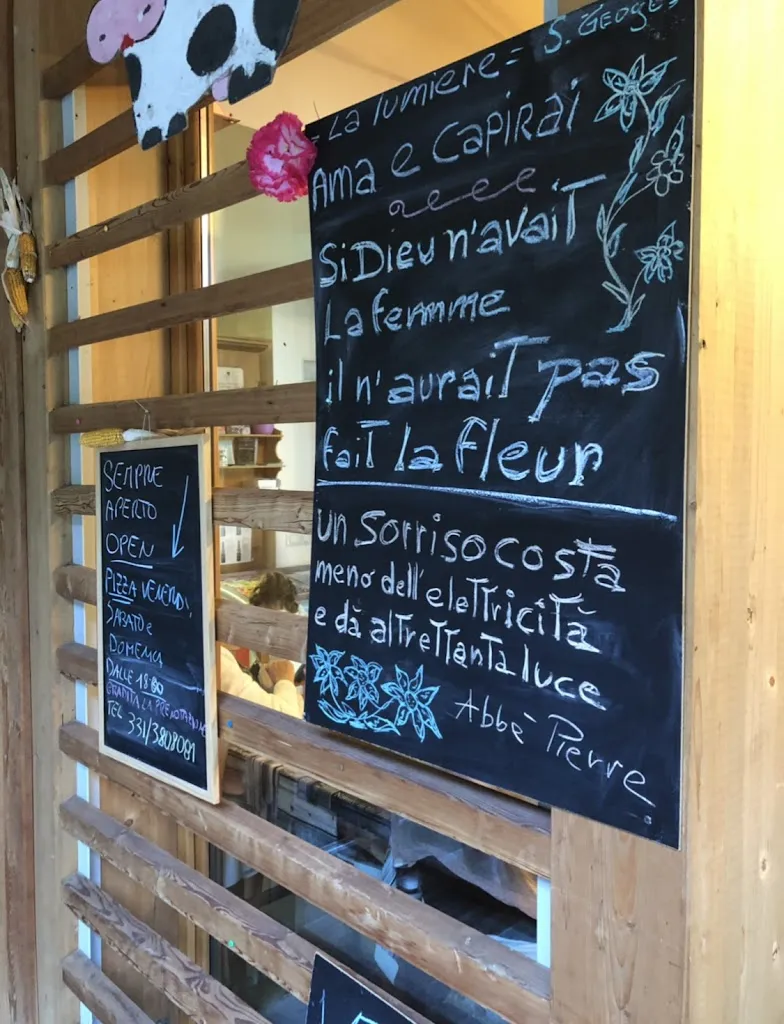 = La lumière = S. Geoges
Ama e Capirai
Si Dieu n'avait
La femme
il n'aurait pas
fait la fleur
un Sorriso costa
meno dell'elettricità
e dà altrettanta luce
Abbè Pierre.
SEMPRE
APERTO
OPEN
PIZZA VENERDI,
SABATO e
DOMENICA
DALLE 18:00
GRADITA LA PRENOTAZIONE
TEL 331/3808091